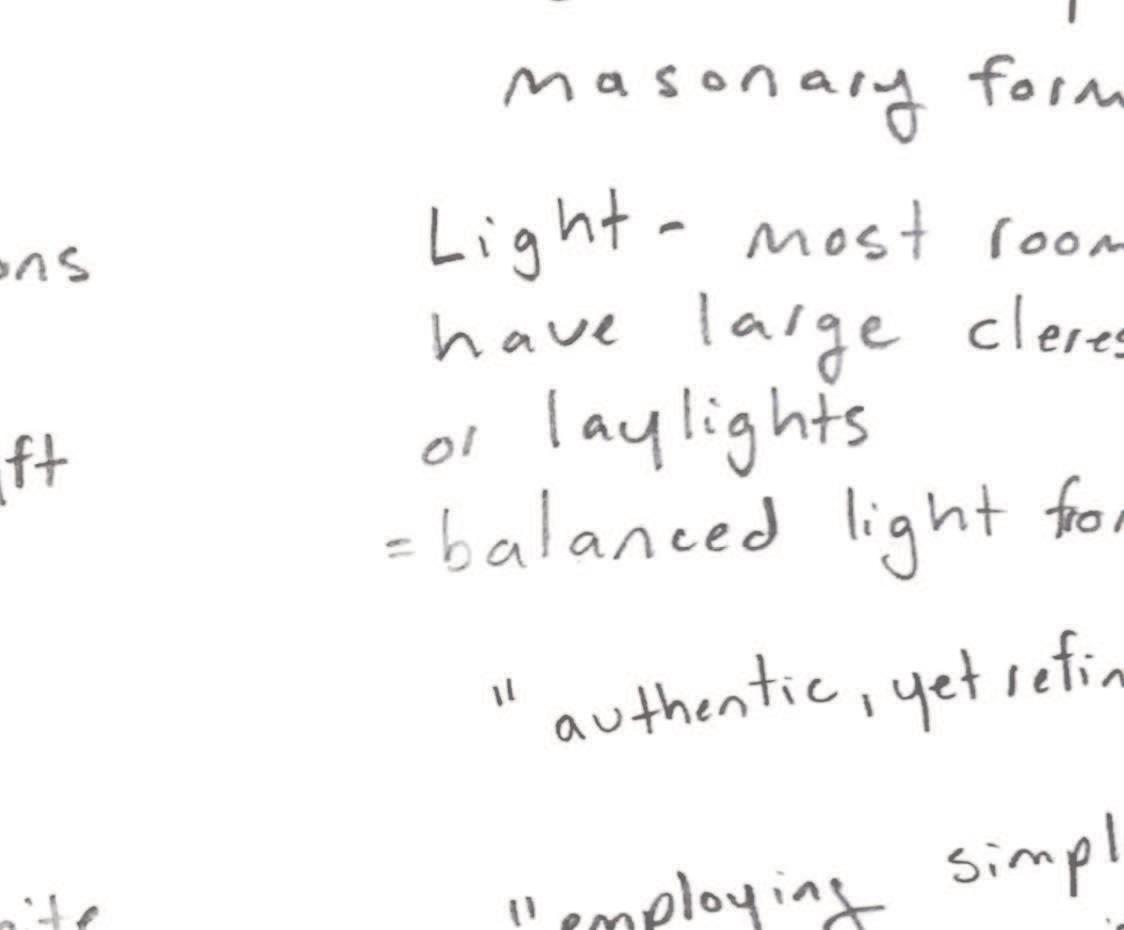 masonary form
Light - most room
ons
have large cleres
or laylights
ft
= balanced light for
" authentic, yet refin
simpl
" employing